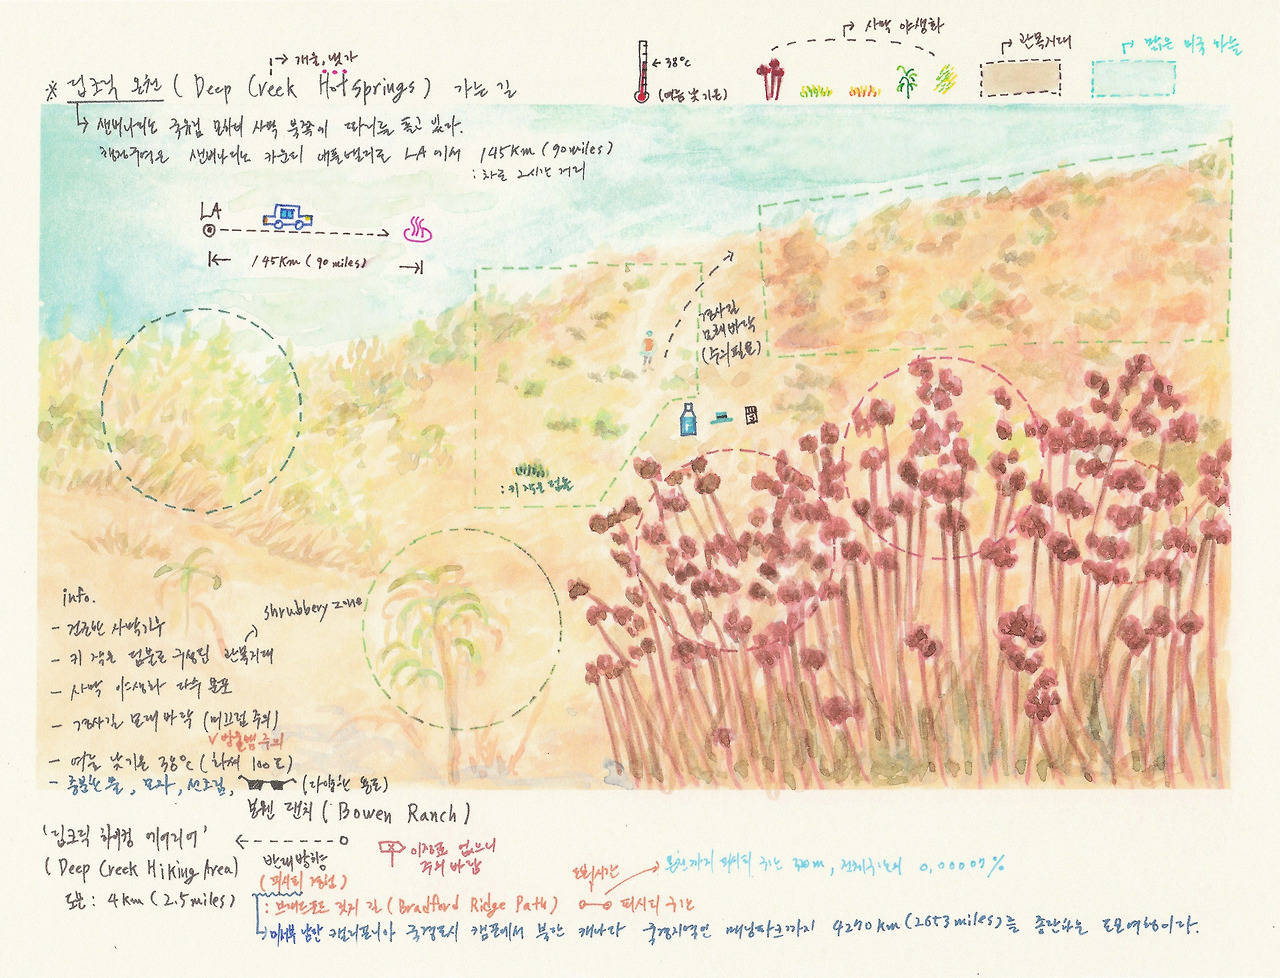 개울, 냇가
※ 딥크릭 온천 (Deep Creek Hot Springs) 가는 길
샌버나디노 국유림 모하비 사막 북쪽이 따리를 틀고 있다.
샌버나디노 카운티 애플밸리로 LA에서 145km (90miles)
: 차로 2시간 거리
38℃
(여름 낮 기온)
사막 야생화
관목지대
맑은 미국 하늘
LA
145km (90 miles)
경사길
모래바닥
(주의필요)
: 키 작은 덤불
info.
shrubbery zone
- 건조한 사막기후
- 키 작은 덤불로 구성된 관목지대
- 사막 야생화 다수 분포
- 경사길 모래바닥 (미끄럼 주의)
v 방울뱀 주의
- 여름 낮기온 38℃ (화씨 100℃)
- 충분한 물, 모자, 선크림, (다양한 용도)
보웬 랜치 (Bowen Ranch)
'딥크릭 하이킹 에어리어'
(Deep Creek Hiking Area)
도보 : 4km (2.5miles)
반대방향
(피시티 경험)
이정표 없으니
주의 바람
: 브래드포드 릿지 길 (Bradford Ridge Path)
피시티 구간
온천까지 피시티 구간 300m, 전체구간의 0.00007%
미서부 남단 캘리포니아 국경도시 캠포에서 북단 캐나다 국경지역인 매닝파크까지 4290km (2653miles)를 종단하는 도보여행이다.